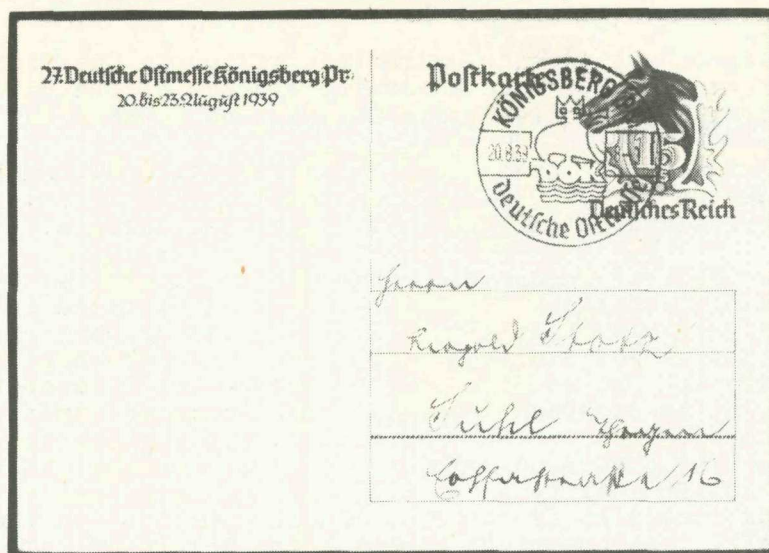 27. Deutsche Ostmesse Königsberg Pr.
20. bis 23. August 1939
Postkarte
KÖNIGSBERG
20.8.39
DOK
Deutsche Ostmesse
15
Deutsches Reich
Herrn
Leopold Stotz
Suhl
16